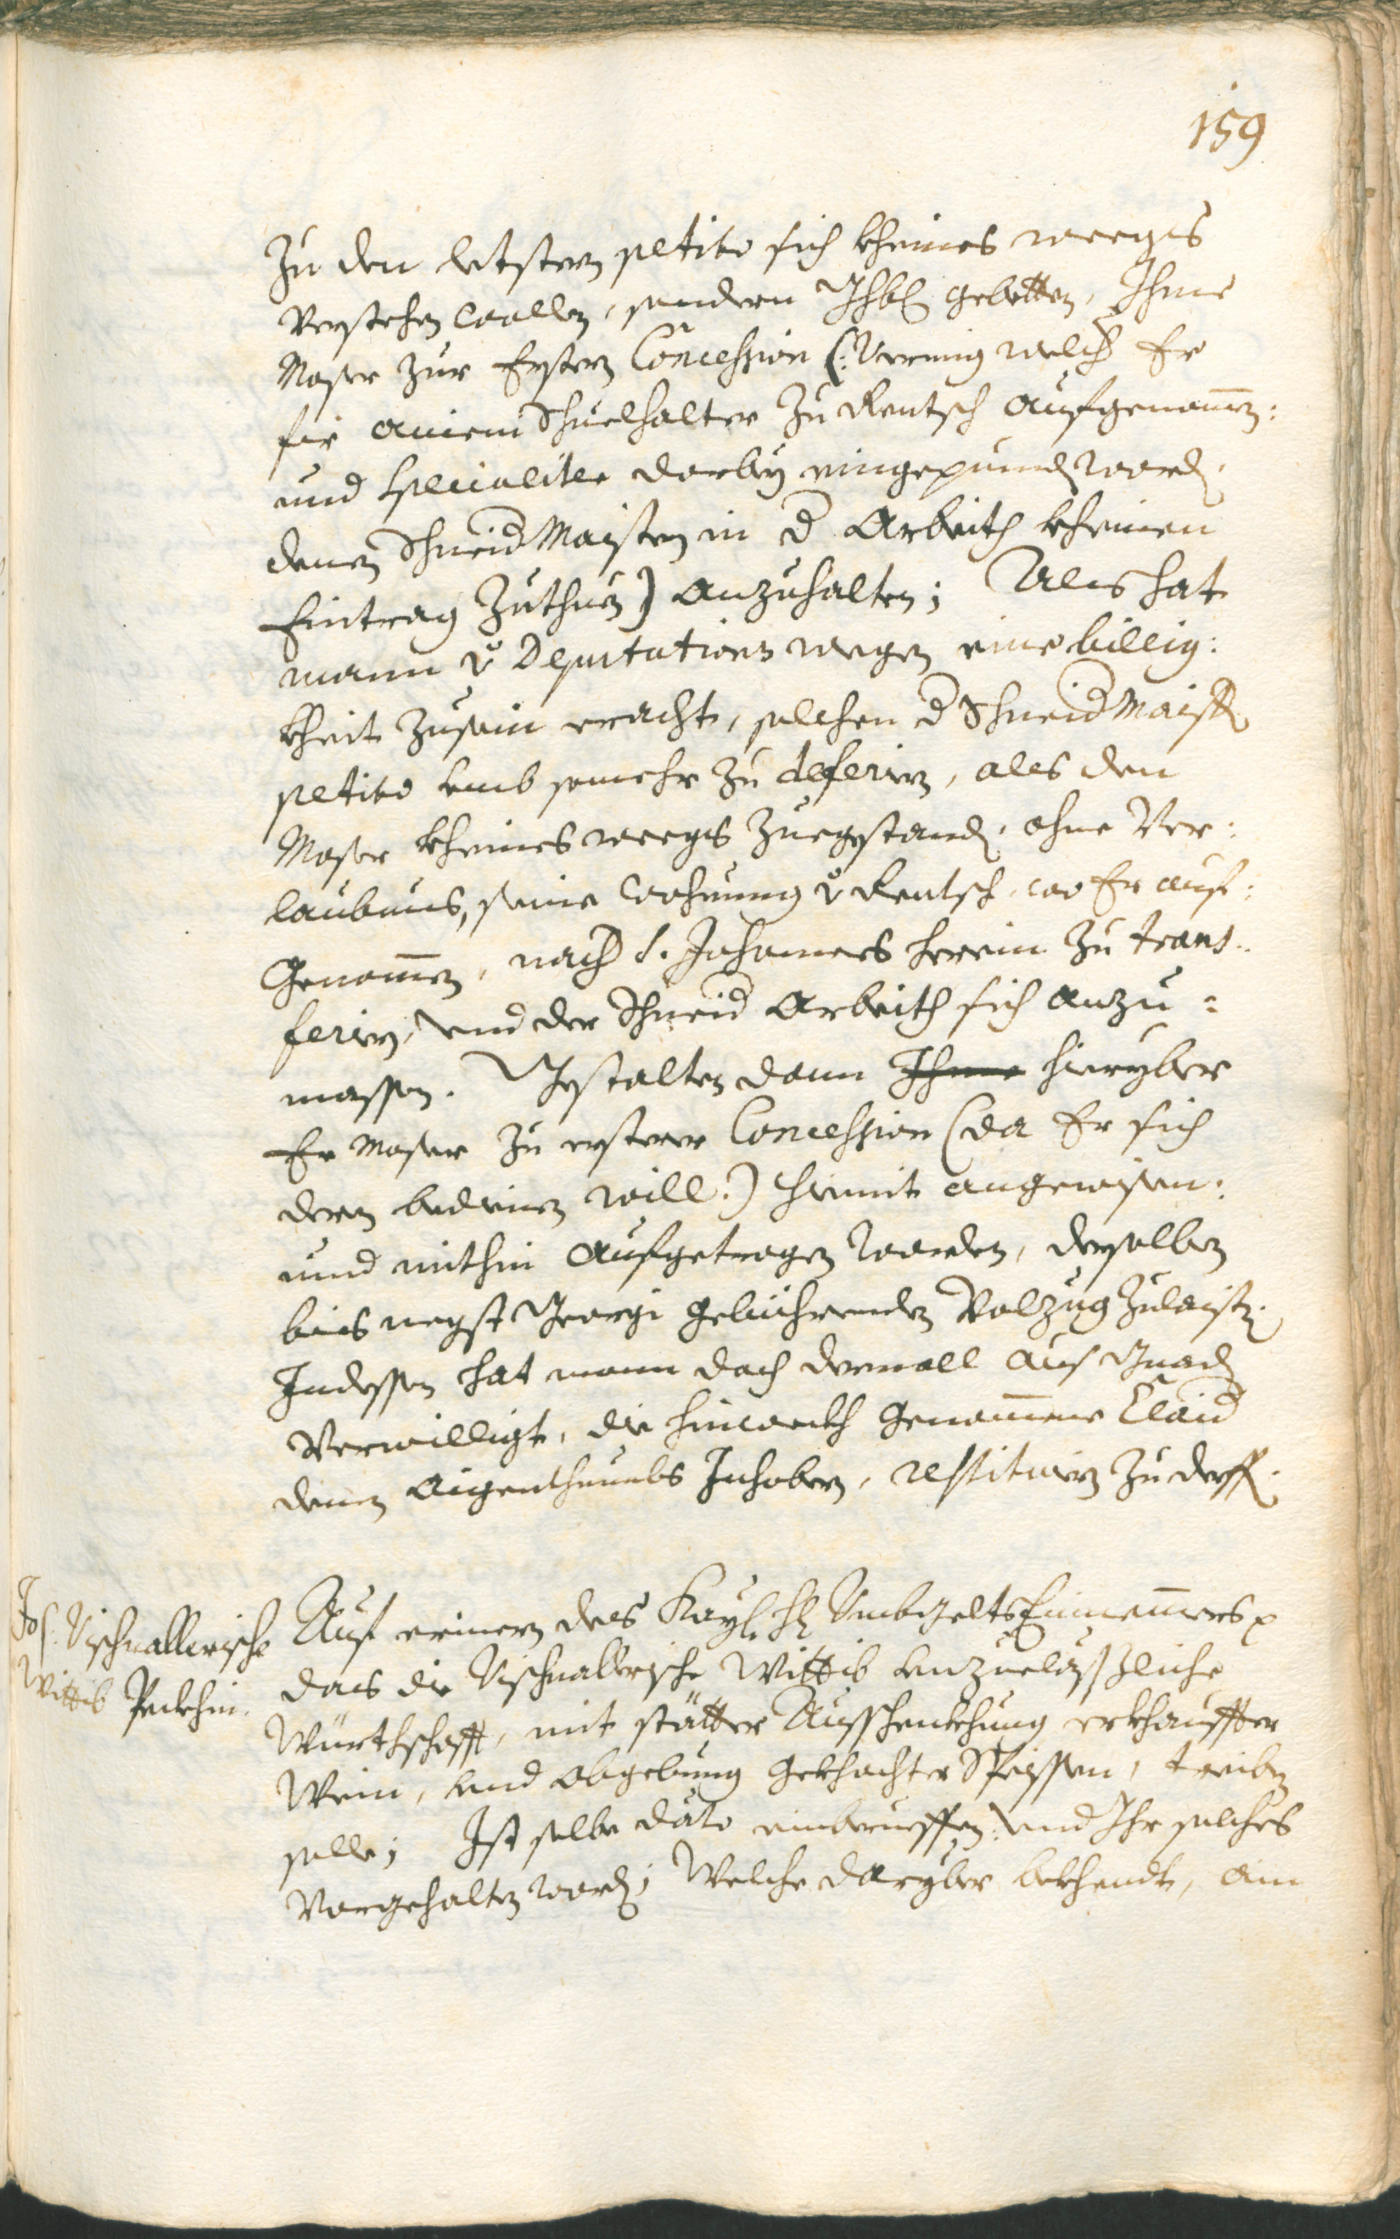 159
Zu den letstern petito sich kheines weegs
verstehen wollen, sondern Ihbl gebetten, Ihme
Moser zur Erstern Concession (: Vermig welch Er
fir ainem Schuelhalter zu Rentsch aufgenomen:
und specialiter darbey eingepundtn word,
denen Schneid Maistern in d Arbeith kheinen
Eintrag zuthuen) anzuhalten; Als hat
mann v Deputations wegen eine billig:
kheit zusein eracht, solchen d Schneid Maistr
petito umb somehr zu deferirn, als den
Moser kheines weegs zuegestandn, ohne Ver:
laubnus, seine Wohnung v Rentsch, wo Er auf:
genomen, nach S. Johannes herein zu trans:
ferirn, und der Schneid Arbeith sich anzu:
massen. Gestalten dann Ihme hieryber
Er Moser zu ersterer Concession (da Er sich
deren bedienen will:) hiemit angewisen:
und mithin aufgetragen worden, derselben
bis negst Georgi gebührenden Volzug zulaistn.
Indessen hat mann doch dermall aus Gnadn
verwilligt, die hinweckh genommene Claid
denen aigenthumbs Inhabern, restituirn zu derffn.
Jos: Vischnallerische
Wittib Peckhin.
Auf erinern des Kayl. H Umbgelts Einnemmers p
das die Vischnallerische Wittib unzuelässliche
Würthschafft, mit stätter Ausschenkhung erkhauffter
Wein, und abgebung gekhochter Speissen, treiben
solle; Ist selbe dato einberueffen: und Ihr solches
vorgehalten wordn; Welche daryber bekhendt, ain